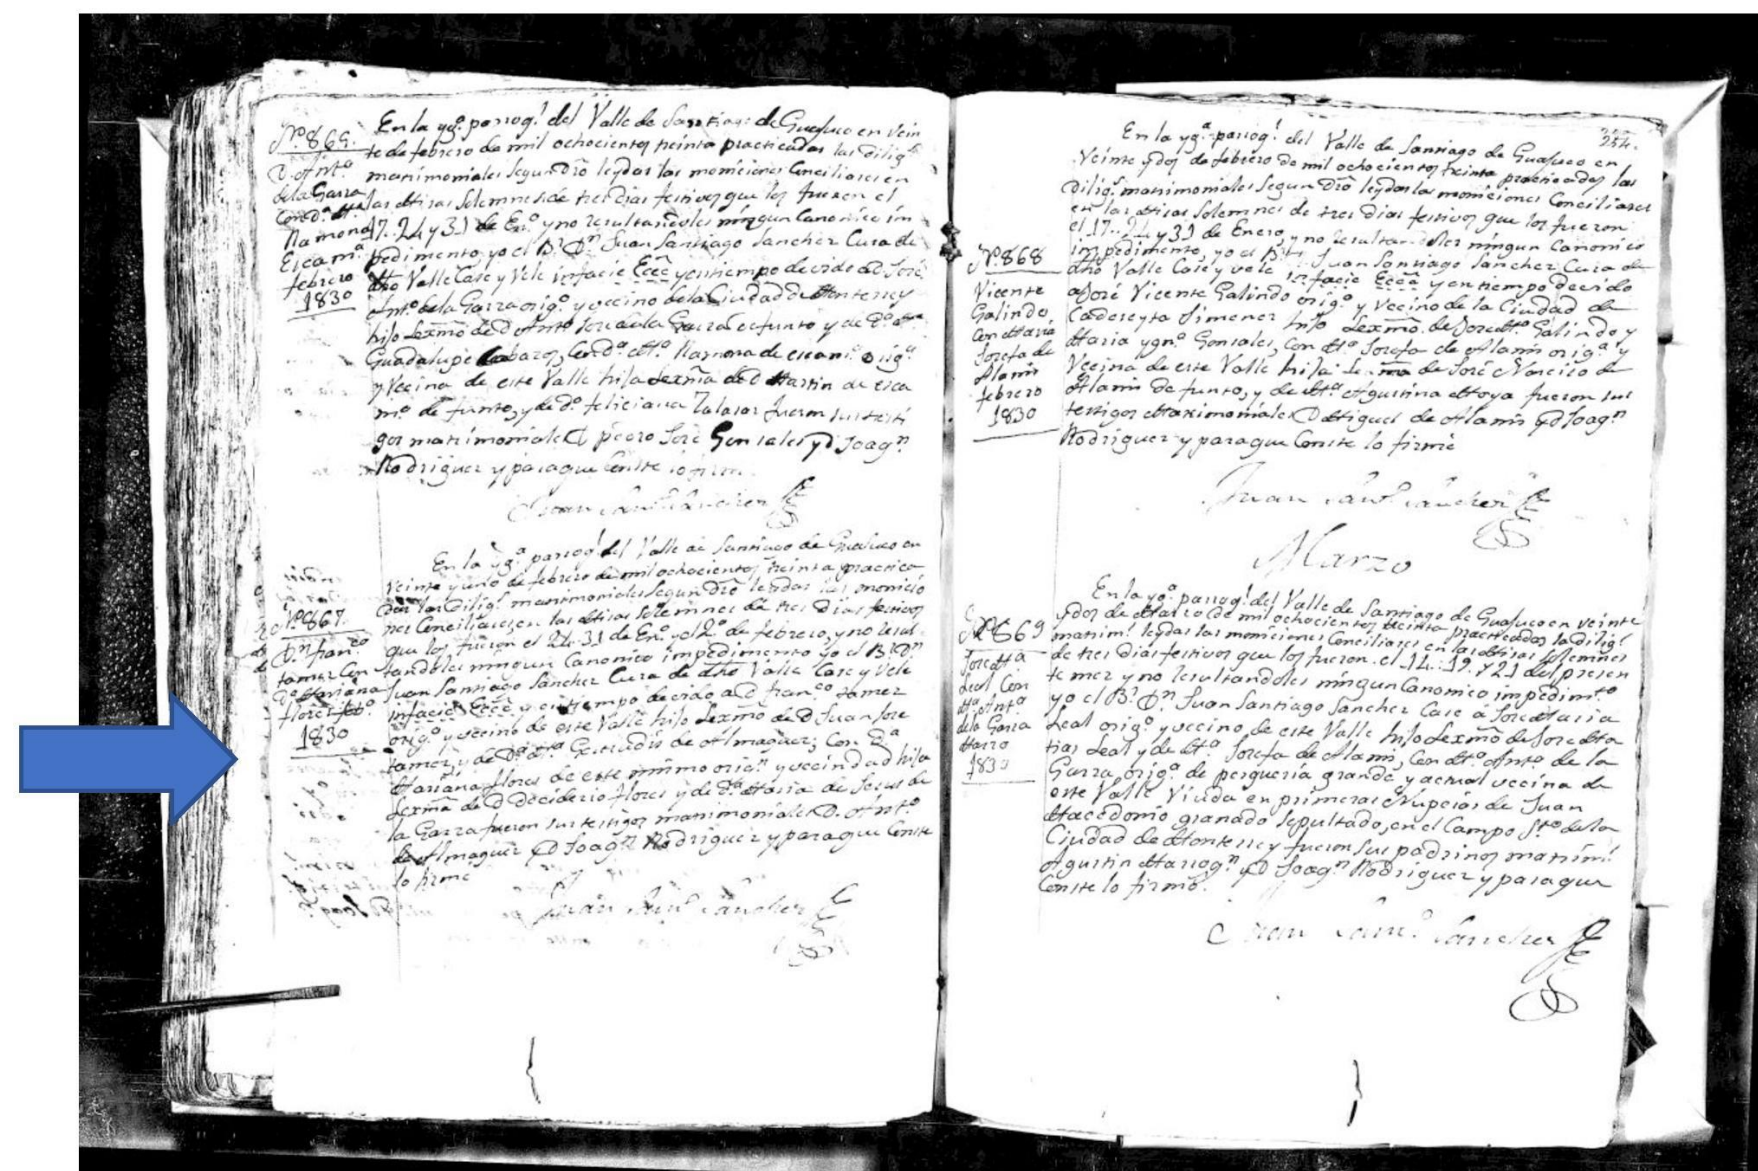 Nº 866.
D. Antº
de la Garza
Con Dª Mª
Ramona
Escamª
febrero
1830
En la ygª parroql del Valle de Santiago de Guajuco en vein
te de febrero de mil ochocientos treinta practicadas las diligs
matrimoniales segun Dro leydas las moniciones Conciliares en
las Misas Solemnes de tres dias festivos que los fueron el
17. 24 y 31 de Enº y no resultandoles ningun Canonico im
pedimento yo el Br Dn Juan Santiago Sanchez Cura de
dho Valle Case y Vele infacie Ecca y en tiempo devido a D José
Antº de la Garza origº y vecino de la Ciudad de Monterrey
hijo Lexmo de D Antº José de la Garza defunto y de Dª Mª
Guadalupe Con Dª Mª Ramona de escamª origª
y Vecina de este Valle hija Lexma de D Martin de esca
mª defunto, y de Dª feliciana Zalazar fueron sus testi
gos matrimoniales D pedro José Gonzales y D Joaqn
Rodriguez y para que Conste lo firmé
Juan Santº Sanchez
Nº 867.
Dn franco
tamez Con
Dª Mariana
flores febº
1830
En la ygª parroql del Valle de Santiago de Guajuco en
Veinte y uno de febrero de mil ochocientos treinta practica
das las Diligs matrimoniales segun Dro leydas las monicio
nes Conciliares, en las Misas solemnes de tres Dias festivos
que los fueron el 24. 31 de Enº y el 2º de febrero, y no resul
tandoles ningun Canonico impedimento yo el Br Dn
Juan Santiago Sanchez Cura de dho Valle Case y Vele
infacie Ecca y en tiempo devido a D franco tamez
origº y vecino de este Valle hijo Lexmo de D Juan José
tamez, y de Dª Mª Gertrudis de Almaguer; Con Dª
Mariana flores de este mismo orign y vecindad hija
Lexma de D Deciderio flores y de Dª Maria de Jesus de
la Garza fueron sus testigos matrimoniales D. Antº
de Almaguer y D Joaqn Rodriguez y para que Conste
lo firmé
Juan Santº Sanchez
254.
Nº 868
Vicente
Galindo
Con Maria
Josefa de
Alanis
febrero
1830
En la ygª parroql del Valle de Santiago de Guajuco en
Veinte y dos de febrero de mil ochocientos treinta practicadas las
Diligs matrimoniales segun Dro leydas las moniciones Conciliares
en las Misas Solemnes de tres dias festivos que los fueron
el 17.. 24 y 31 de Enero, y no resultandoles ningun Canonico
impedimento, yo el Br Dn Juan Santiago Sanchez Cura de
dho Valle Case y vele infacie Ecca y en tiempo devido
a José Vicente Galindo origº y Vecino de la Ciudad de
Cadereyta Jimenez hijo Lexmo. de José Mª Galindo y
Maria ygnª Gonsales, Con Mª Josefa de Alanis origª y
Vecina de este Valle hija Lexma de José Narciso de
Alanis defunto, y de Mª Agustina Moya fueron sus
testigos Matrimoniales D Miguel de Alanis y D Joaqn
Rodriguez y para que Conste lo firmé
Juan Santº Sanchez
Marzo
Nº 869
José Mª
Leal Con
Mª Antª
de la Garza
Marzo
1830
En la ygª parroql del Valle de Santiago de Guajuco en veinte
y dos de Marzo de mil ochocientos treinta practicadas las Diligs
matriml leydas las moniciones Conciliares en las Misas Solemnes
de tres dias festivos que los fueron. el 14.. 19. y 21 del presen
te mez y no resultandoles ningun Canonico impedimto
yo el Br Dn Juan Santiago Sanchez Case á José Maria
Leal origº y vecino de este Valle hijo Lexmo de José Ma
tias Leal y de Mª Josefa de Alanis, Con Mª Antª de la
Garza origª de pesqueria grande y actual vecina de
este Valle Viuda en primeras Nupcias de Juan
Macedonio granado sepultado, en el Campo Stº de la
Ciudad de Monterrey fueron sus padrinos matriml
Agustin Marroqn y D Joaqn Rodriguez y para que
Conste lo firmé.
Juan Santº Sanchez